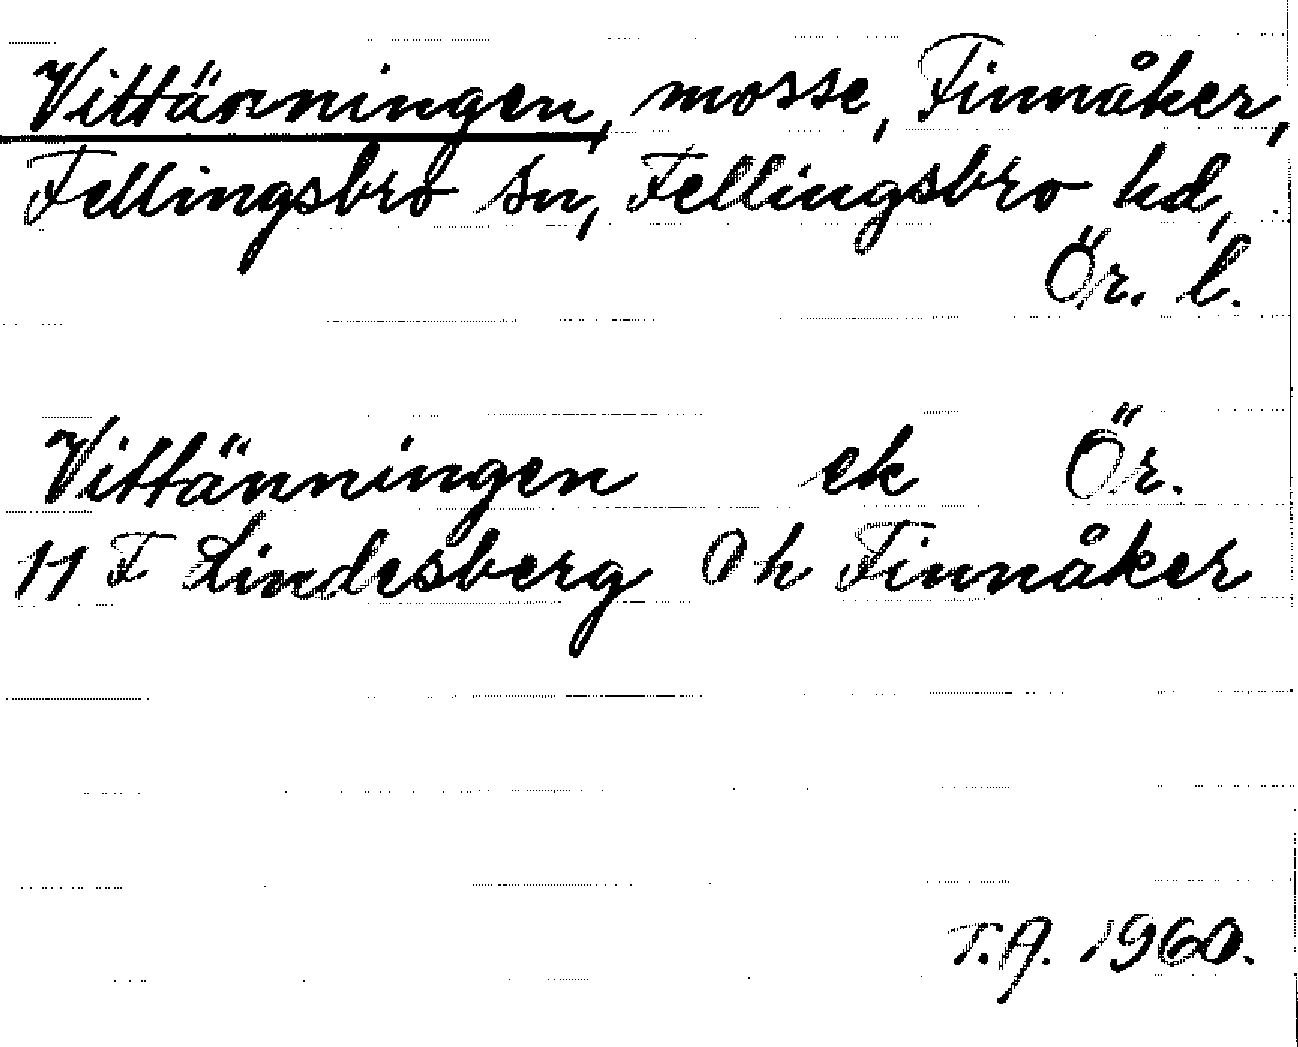 Vittänningen, mosse, Finnåker,
Fellingsbro sn, Fellingsbro hd,
Ör. l.
Vittänningen ek Ör.
11 F Lindesberg O h Finnåker
T.A. 1960.